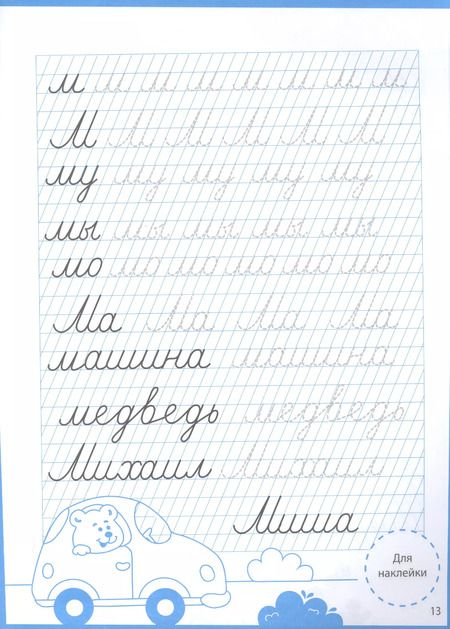 м м м м м м м м
М М М М М М М
му му му му му
мы мы мы мы мы
мо мо мо мо мо мо
Ма Ма Ма Ма
машина машина
медведь медведь
Михаил Михаил
Миша
Для
наклейки
13